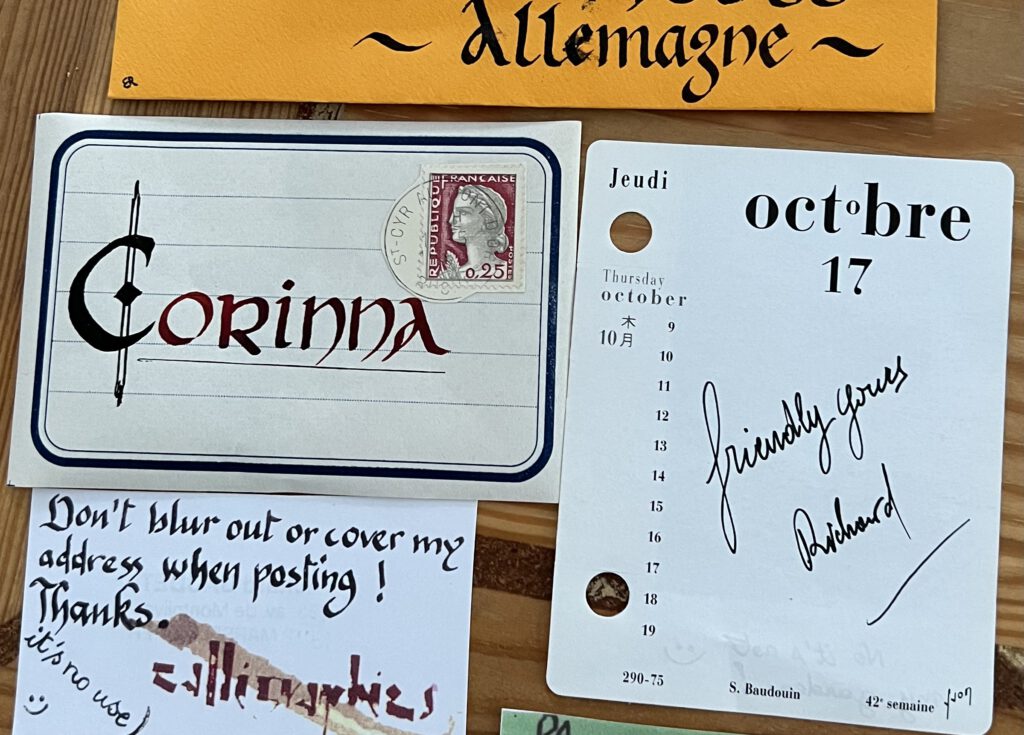 ~ Allemagne ~
Corinna
ST-CYR
REPUBLIQUE
FRANÇAISE
0,25
POSTES
Don't blur out or cover my
address when posting !
Thanks.
it's no use)
calligraphies
Jeudi
octobre
17
Thursday
october
木
10月
9
10
11
12
13
14
15
16
17
18
19
friendly yours
Richard
290-75
S. Baudouin
42e semaine